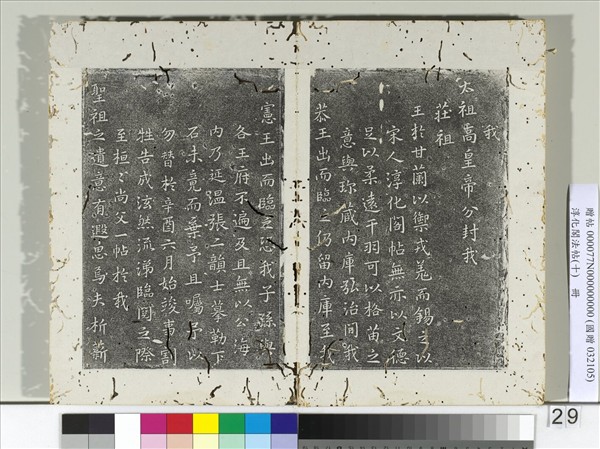 我
太祖高皇帝分封我
莊祖
王於甘蘭以禦戎羗而錫之以
宋人淳化閣帖無亦以文德
足以柔遠干羽可以格苗之
意與珎藏內庫弘治間我
恭王出而臨之仍留內庫至我
憲王出而臨之恐我子孫與
各王府不遍及且無以公海
內乃延溫張二韻士摹勒下
石未竟而棄予且囑予以
勿替於辛酉六月始竣事割
牲告成泫然流涕臨閱之際
至桓〻尚父一帖於我
聖祖之遺意有遐思焉夫析薪
贈帖 000077N000000000 (國贈 032105)
淳化閣法帖(十) 冊
29